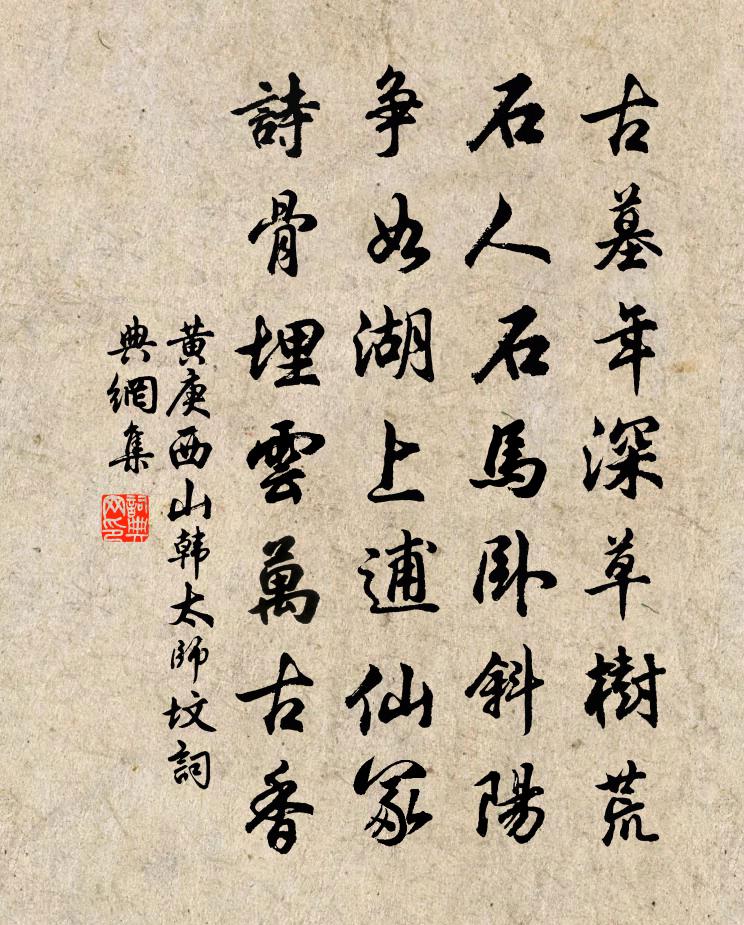 古墓年深草樹荒
石人石馬臥斜陽
争如湖上逋仙冢
詩骨埋雲萬古香
黄庚西山韩太师坟詞
典網集
詞典网印